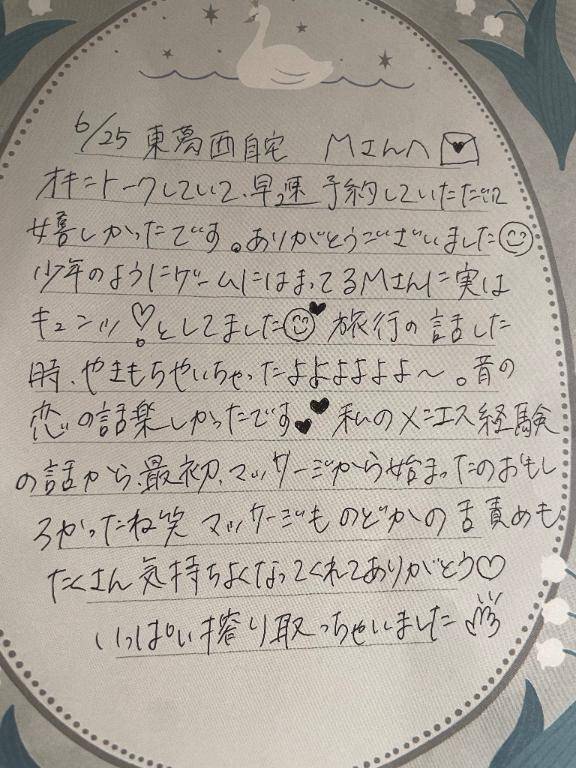 6/25 東葛西自宅 Mさんへ
オキニトークしていて、早速予約していただけて
嬉しかったです。ありがとうございました
少年のようにゲームにはまってるMさんに実は
キュンッ♡としてました 旅行の話した
時、やきもちやいちゃったよよよよよよ〜。昔の
恋の話楽しかったです 私のメニエス経験
の話から、最初、マッサージから始まったのおもし
ろかったね笑 マッサージも のどかの舌責めも
たくさん気持ちよくなってくれてありがとう♡
いっぱい搾り取っちゃいました